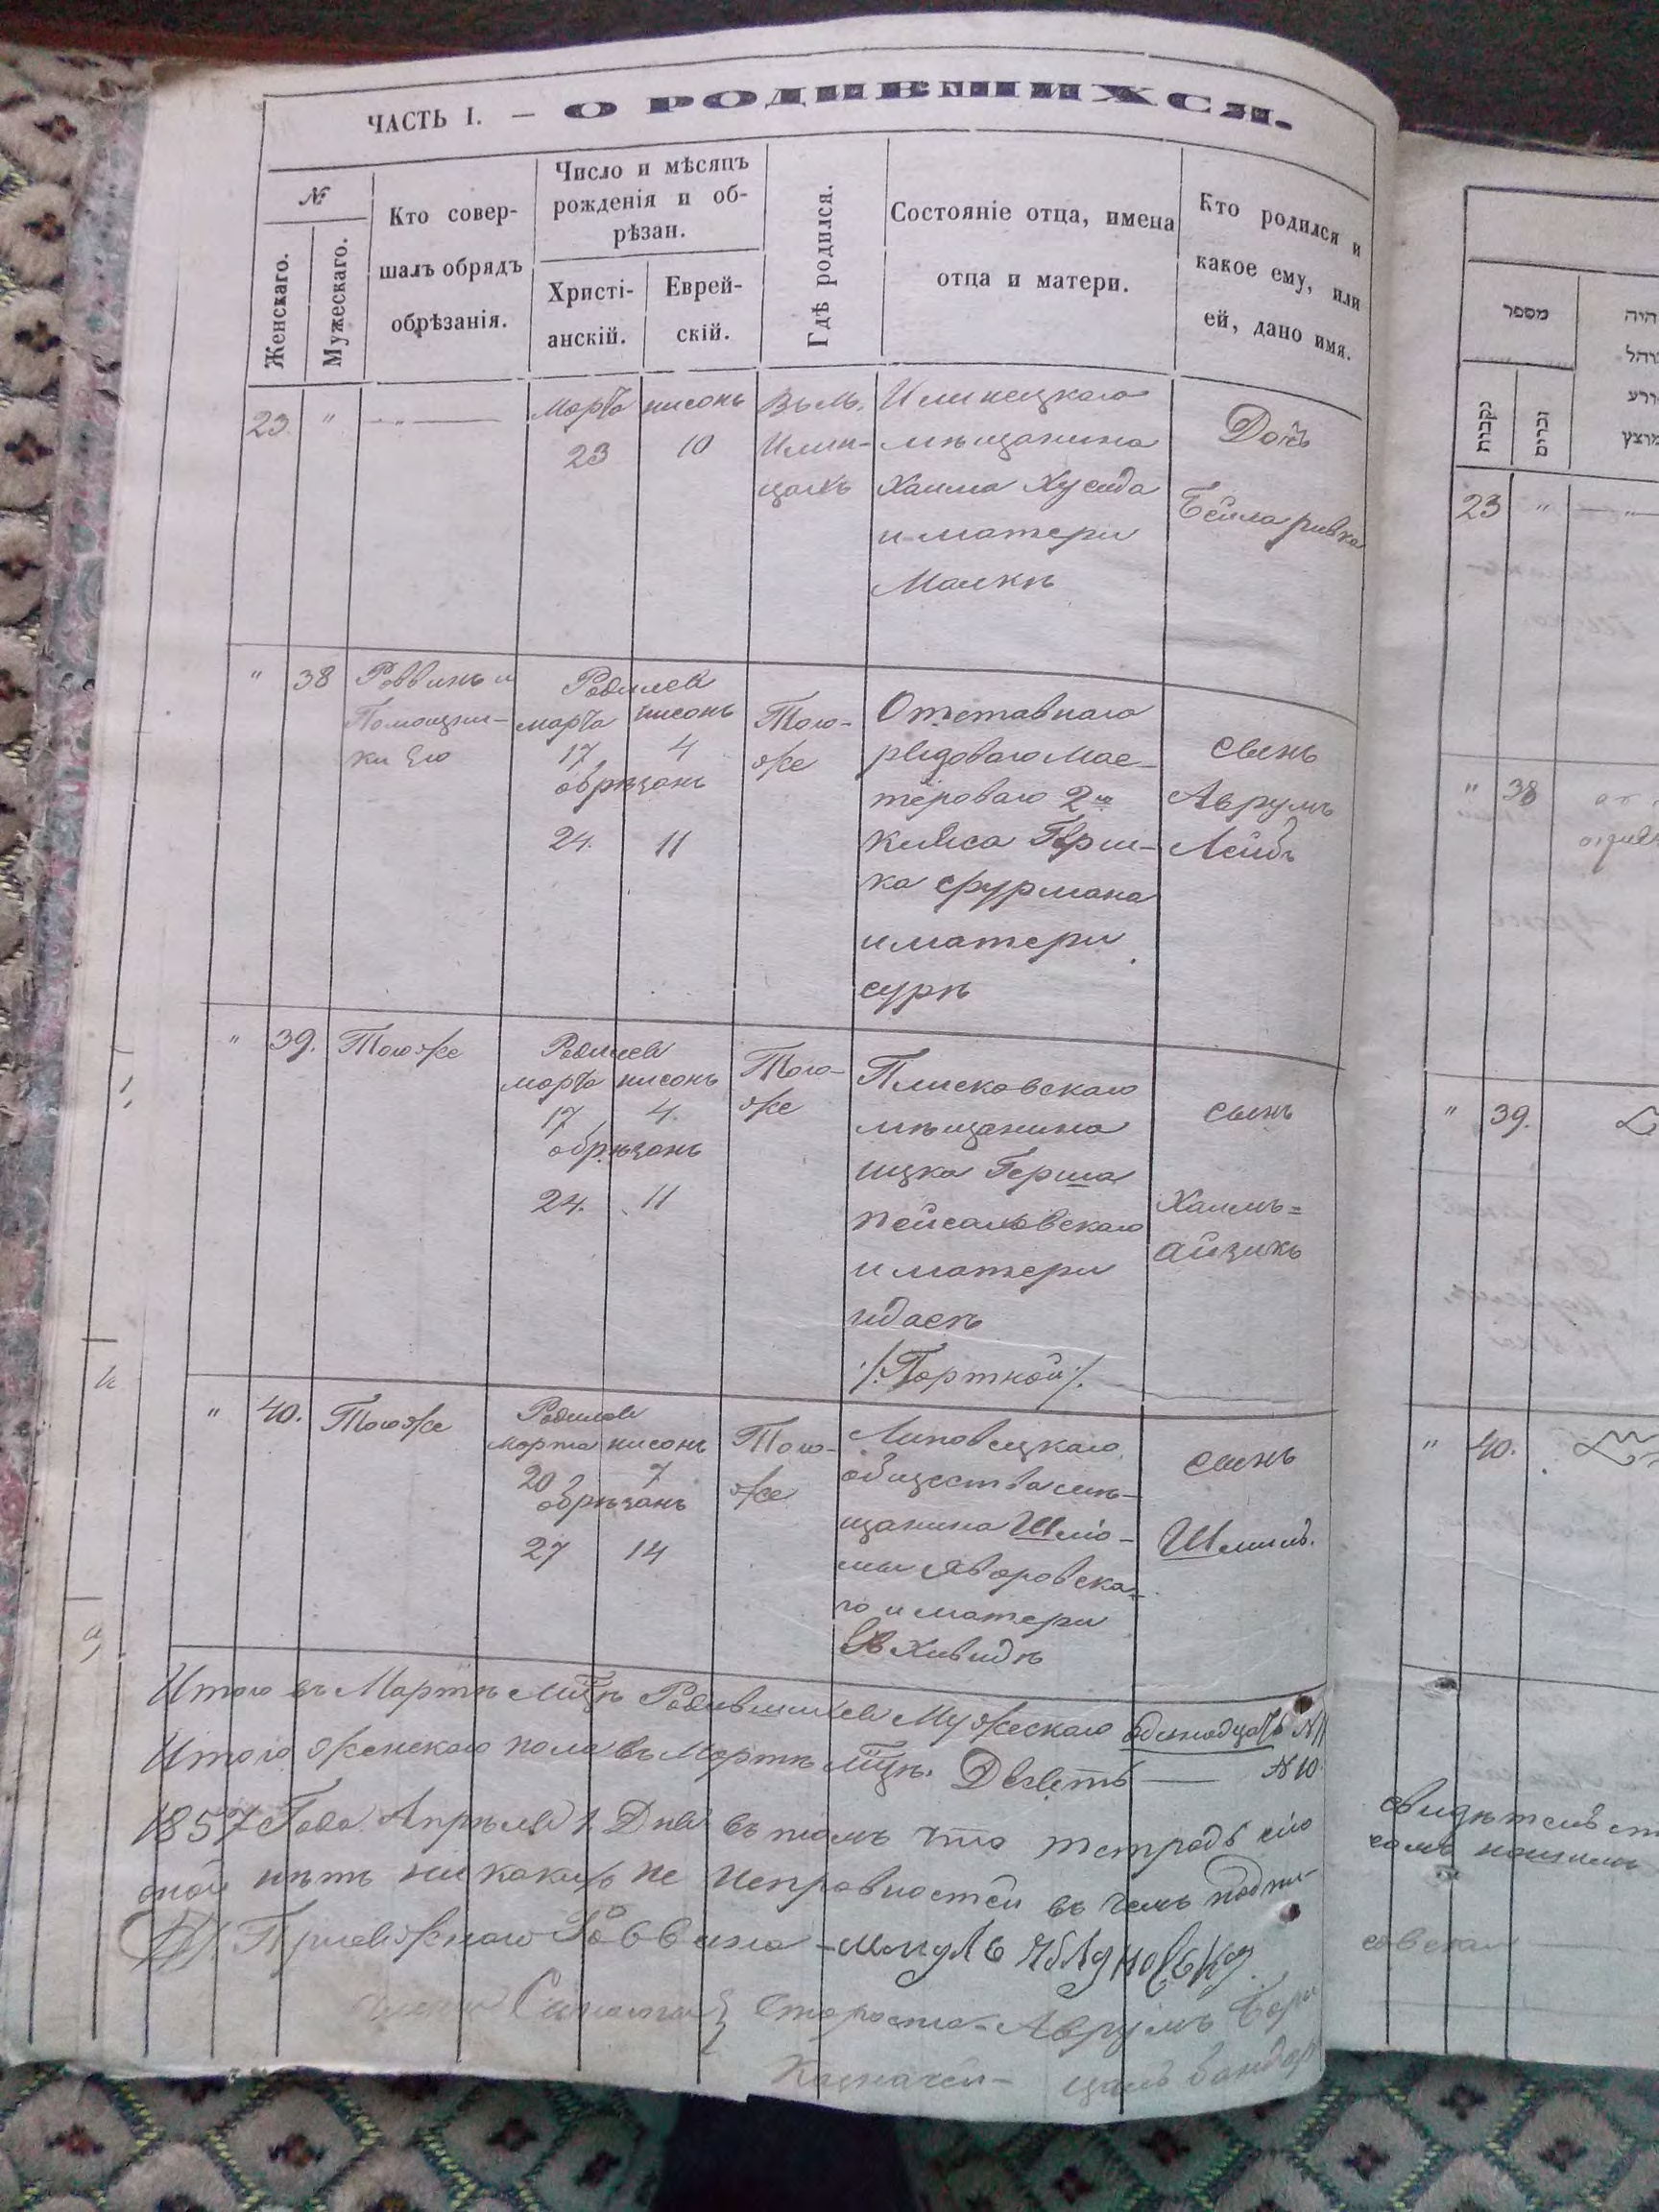 ЧАСТЬ I. — О РОДИВШИХСЯ.
№
Женскаго.
Мужескаго.
Кто совер-
шалъ обрядъ
обрѣзанія.
Число и мѣсяцъ
рожденія и об-
рѣзан.
Христі-
анскій.
Еврей-
скій.
Гдѣ родился.
Состояніе отца, имена
отца и матери.
Кто родился и
какое ему, или
ей, дано имя.
23 " — " —
Марта
23
нисонъ
10
Въ м.
Илин-
цахъ
Илинецкаго
мѣщанина
Хаима Хусида
и матери
Малки
Дочь
Бейла ривка
" 38
Раввинъ и
Помощни-
ки Его
Родился
марта нисонъ
17 4
обрѣзанъ
24. 11
Того-
же
Отставнаго
рядоваго мас-
тероваго 2го
класа Герш-
ка фурмана
и матери
сури
сынъ
Аврумъ
Лейбъ
" 39. Тогоже
Родился
марта нисонъ
17 4.
обрѣзанъ
24. 11
Того-
же
Плисковскаго
мѣщанина
ицка Герша
и матери
идаси
/:Портной:/
сынъ
Хаимъ=
айзикъ
" 40. Тогоже
Родился
марта нисонъ
20 7
обрѣзанъ
27 14
Того-
же
Липовецкаго
общества мѣ-
щанина Шліо-
мы Яворовска-
го и матери
сынъ
Шмиль.
Итого въ Мартѣ мцѣ Родившихся Мужескаго одинадцать № 11
Итого женскаго пола въ Мартѣ мцѣ. Деветь — № 10.
1857 Года Апрѣля 1 Дня въ томъ что тетрадь сію
оной нѣтъ никакихъ не исправностей въ чемъ подпи-
Раввина
Староста Аврумъ
Казначей —
מספר
נקבות
זכרים
23 " — " —
" 38
" 39.
" 40.